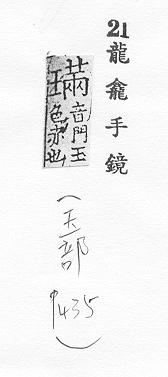 21 龍龕手鏡
璊 音門玉
色赤也
(玉部 P435)